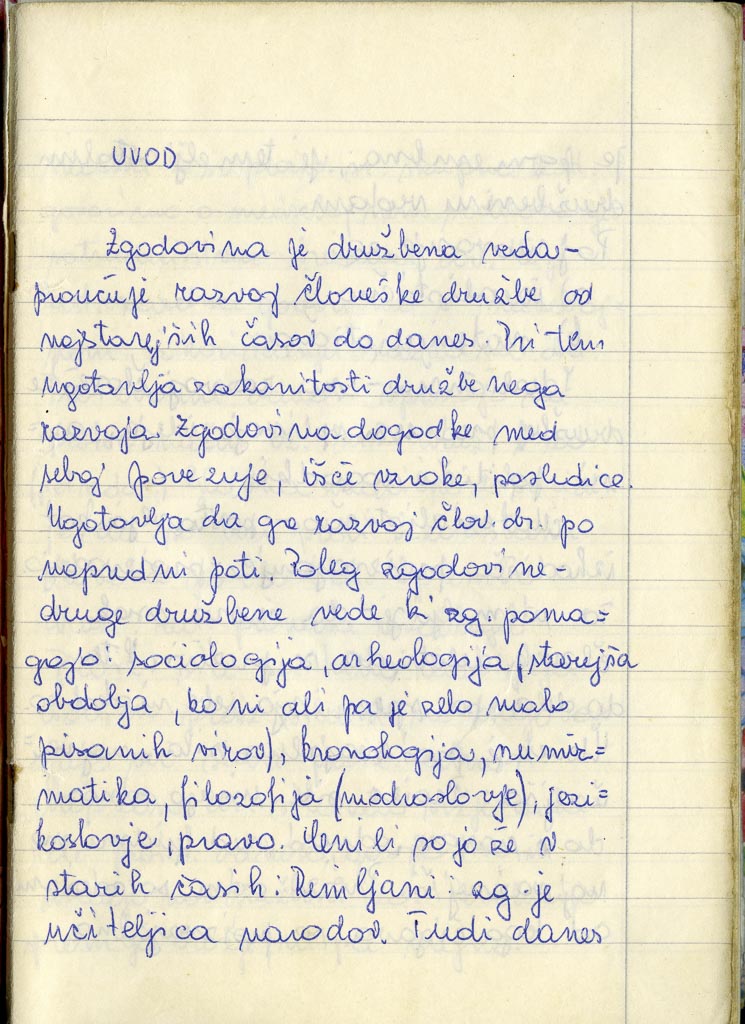 UVOD
Zgodovina je družbena veda-
proučuje razvoj človeške družbe od
najstarejših časov do danes. Pri tem
ugotavlja zakonitosti družbenega
razvoja. Zgodovina dogodke med
seboj povezuje, išče vzroke, posledice.
Ugotavlja da gre razvoj člov. dr. po
napredni poti. Poleg zgodovine-
druge družbene vede ki zg. poma=
gajo: sociologija, arheologija (starejša
obdobja, ko ni ali pa je zelo malo
pisanih virov), kronologija, numiz=
matika, filozofija (modroslovje), jezi=
koslovje, pravo. Cenili so jo že v
starih časih: Rimljani: zg. je
učiteljica narodov. Tudi danes